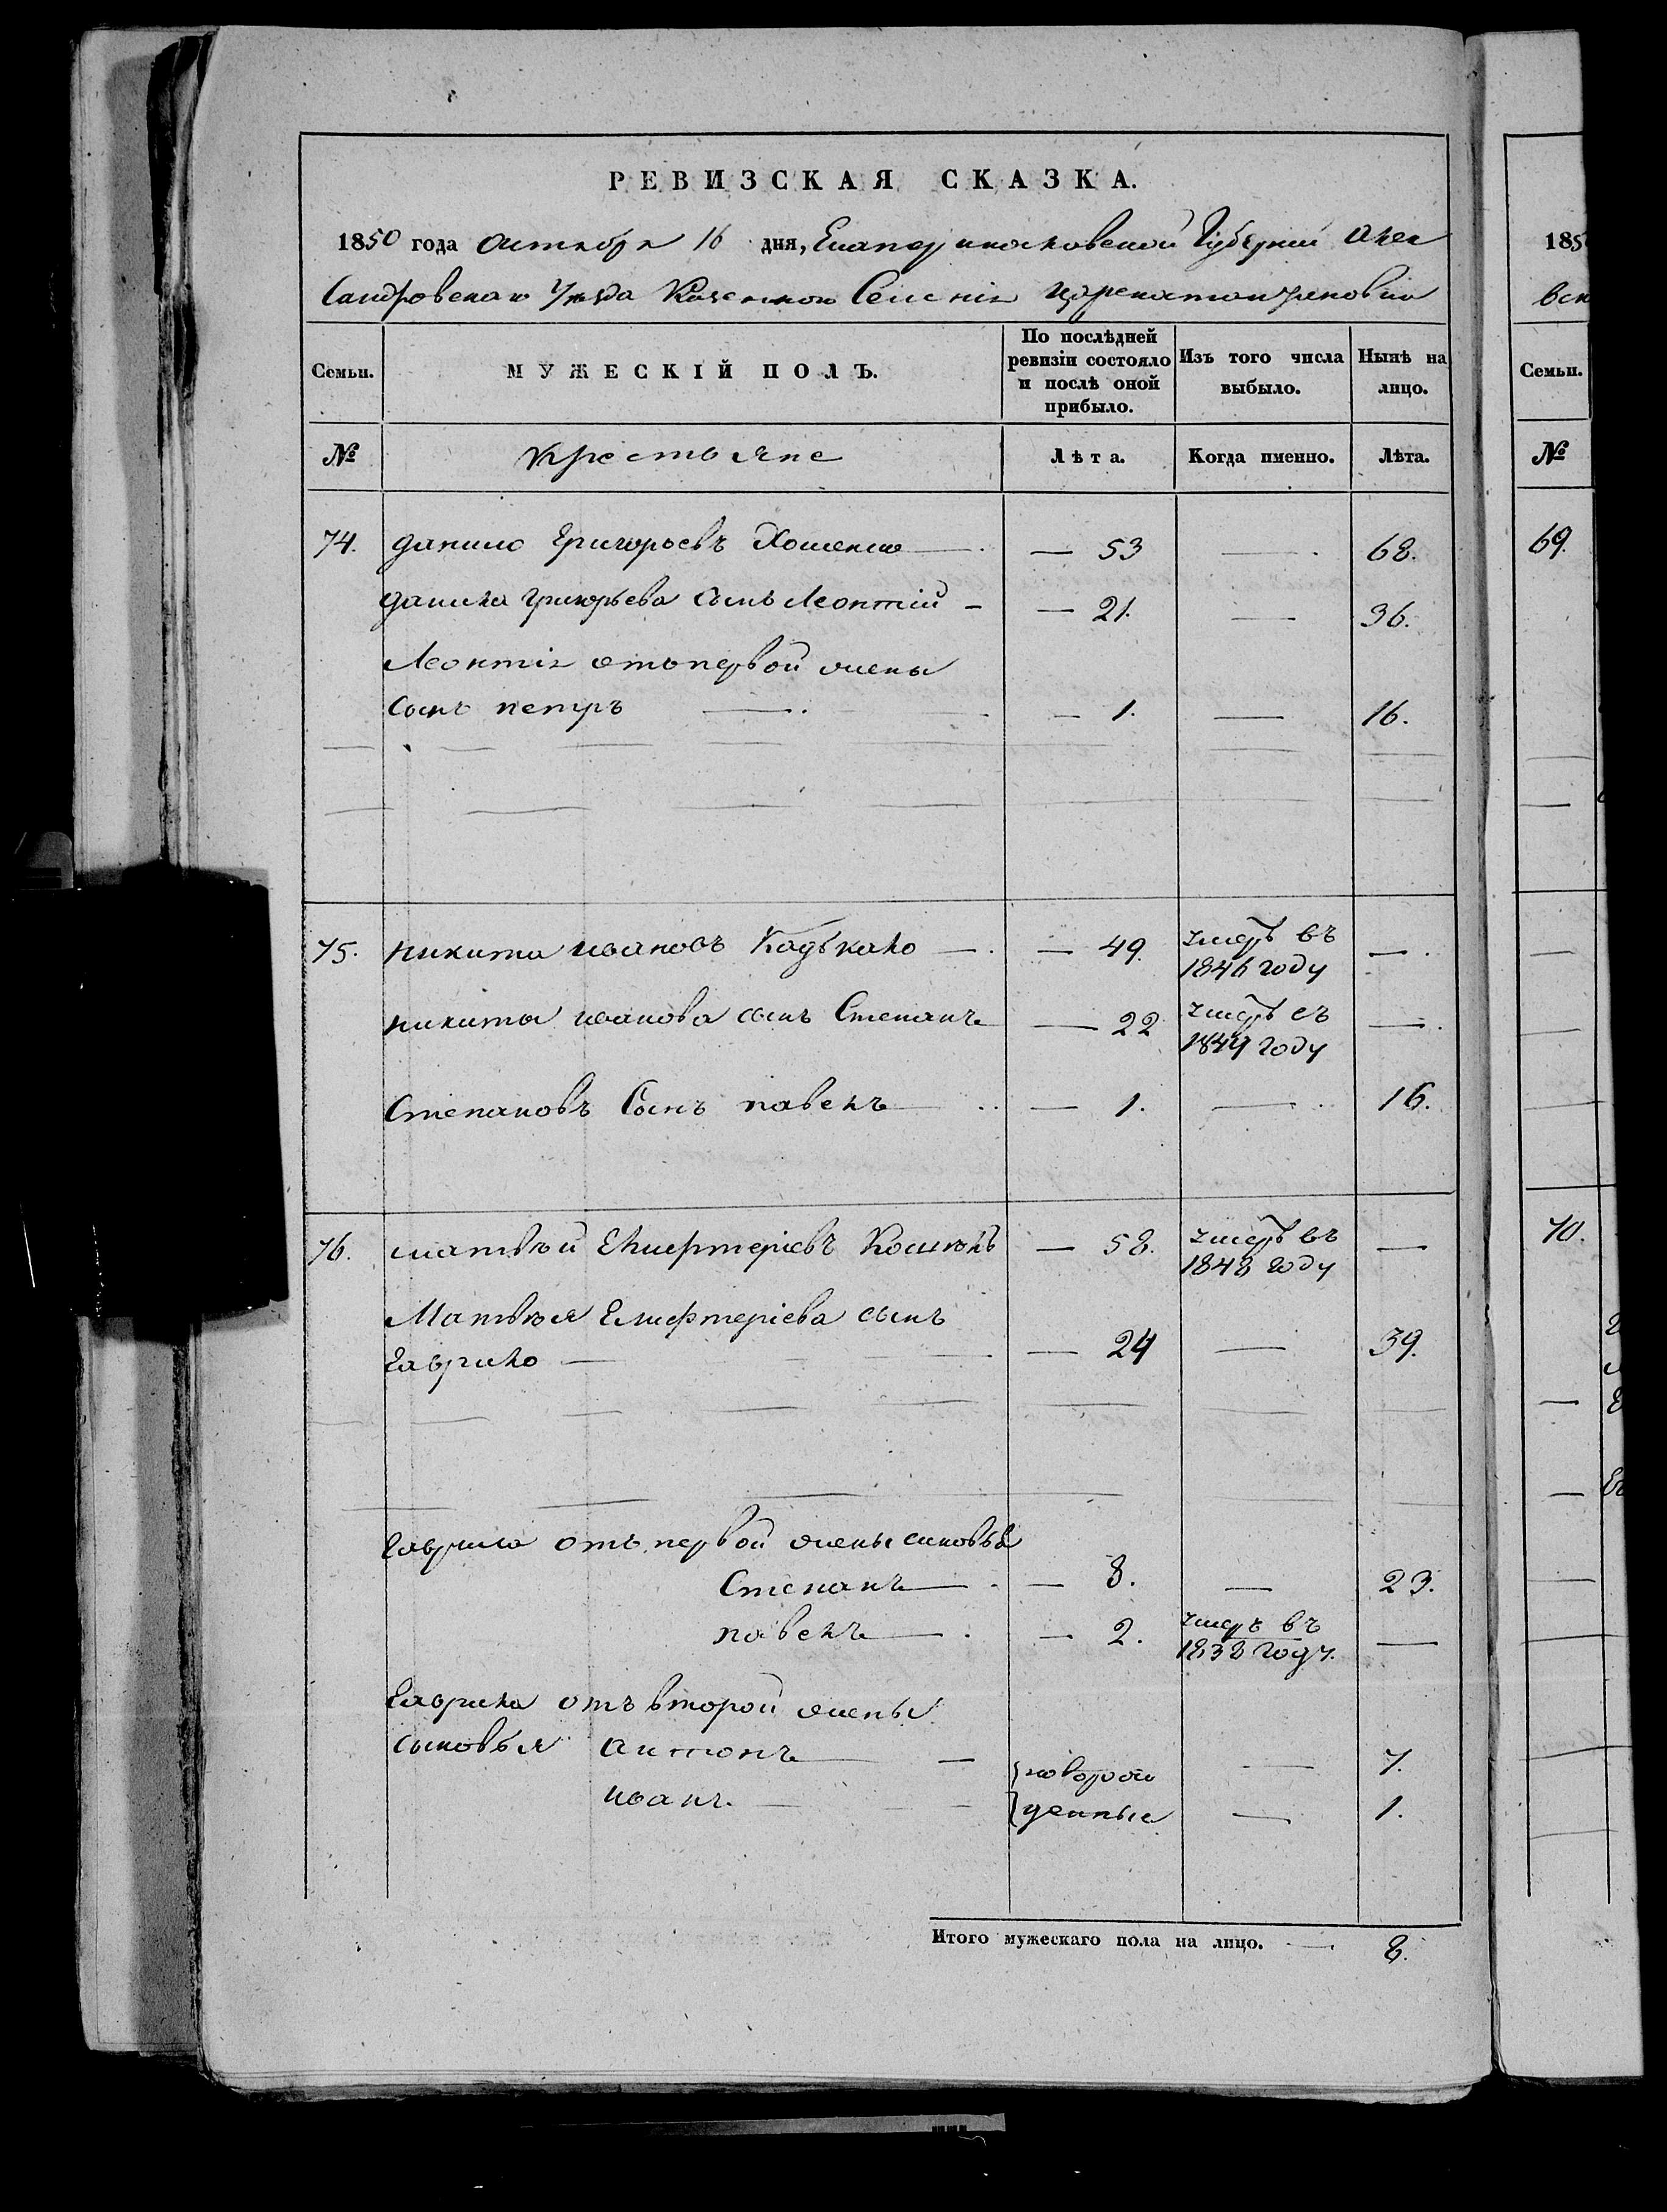 РЕВИЗСКАЯ СКАЗКА.
1850 года октября 16 дня, Екатеринославской Губерніи Алек
сандровскаго Уѣзда Казенного Селенія Цареконстантиновки
Семьи. МУЖЕСКІЙ ПОЛЪ. По послѣдней ревизіи состояло и послѣ оной прибыло. Изъ того числа выбыло. Нынѣ на лицо.
№ Крестьяне Лѣта. Когда именно. Лѣта.
74. Данило Григорьевъ — 53 — 68.
Данила Григорьева сынъ Леонтій — 21. — 36.
Леонтія отъ первой жены
сынъ Петръ — 1. — 16.
75. Никита Ивановъ — 49. умеръ въ 1846 году —
Никиты Иванова сынъ Степанъ — 22 умеръ въ году —
Степановъ сынъ Павелъ — 1. — 16.
76. Матвѣй Елифтеріевъ — 58. умеръ въ 1848 году —
Матвѣя Елифтеріева сынъ
Гаврило — 24 — 39.
Гаврила отъ первой жены сыновья
Степанъ — 8. — 23.
Павелъ — 2. умеръ въ 1838 году. —
Гаврила отъ второй жены
сыновья Антонъ — новорож — 7.
Иванъ — денные — 1.
Итого мужескаго пола на лицо. — 8.
185
Семьи.
№
69.
70.